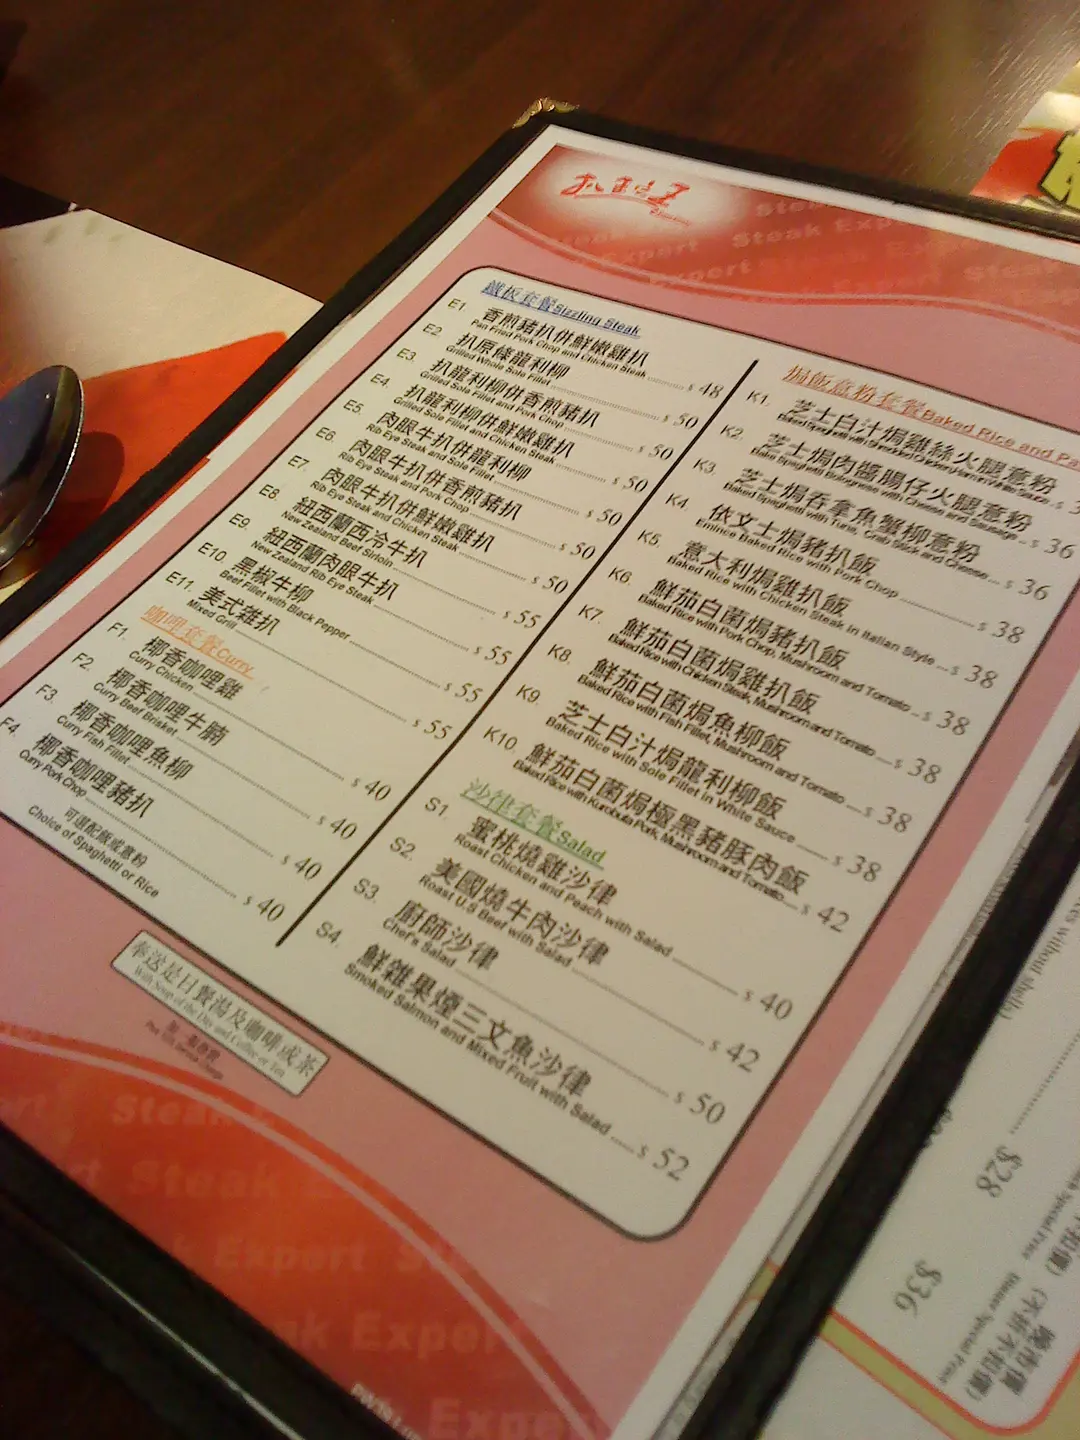 Steak Expert
鐵板套餐Sizzling Steak
E1. 香煎豬扒併鮮嫩雞扒
Pan Fried Pork Chop and Chicken Steak $ 48
E2 扒原條龍利柳
Grilled Whole Sole Fillet $ 50
E3. 扒龍利柳併香煎豬扒
Grilled Sole Fillet and Pork Chop $ 50
E4. 扒龍利柳併鮮嫩雞扒
Grilled Sole Fillet and Chicken Steak $ 50
E5. 肉眼牛扒併龍利柳
Rib Eye Steak and Sole Fillet $ 50
E6. 肉眼牛扒併香煎豬扒
Rib Eye Steak and Pork Chop $ 50
E7. 肉眼牛扒併鮮嫩雞扒
Rib Eye Steak and Chicken Steak $ 50
E8. 紐西蘭西冷牛扒
New Zealand Beef Sirloin $ 55
E9. 紐西蘭肉眼牛扒
New Zealand Rib Eye Steak $ 55
E10. 黑椒牛柳
Beef Fillet with Black Pepper $ 55
E11. 美式雜扒
Mixed Grill $ 55
咖哩套餐Curry
F1. 椰香咖哩雞
Curry Chicken $ 40
F2. 椰香咖哩牛腩
Curry Beef Brisket $ 40
F3. 椰香咖哩魚柳
Curry Fish Fillet $ 40
F4. 椰香咖哩豬扒
Curry Pork Chop $ 40
可選配飯或意粉
Choice of Spaghetti or Rice
焗飯意粉套餐Baked Rice and Pa
K1. 芝士白汁焗雞絲火腿意粉
Baked Spaghetti with Shredded Chicken, Ham in White Sauce $ 3
K2. 芝士焗肉醬腸仔火腿意粉
Bake Spaghetti Bolognese with Cheese and Sausage $ 36
K3. 芝士焗吞拿魚蟹柳意粉
Baked Spaghetti with Tuna, Crab Stick and Cheese $ 36
K4. 依文士焗豬扒飯
Emince Baked Rice with Pork Chop $ 38
K5. 意大利焗雞扒飯
Baked Rice with Chicken Steak in Italian Style $ 38
K6. 鮮茄白菌焗豬扒飯
Baked Rice with Pork Chop, Mushroom and Tomato $ 38
K7. 鮮茄白菌焗雞扒飯
Baked Rice with Chicken Steak, Mushroom and Tomato $ 38
K8. 鮮茄白菌焗魚柳飯
Baked Rice with Fish Fillet, Mushroom and Tomato $ 38
K9. 芝士白汁焗龍利柳飯
Baked Rice with Sole Fillet in White Sauce $ 38
K10. 鮮茄白菌焗極黑豬豚肉飯
Baked Rice with Kurobuta Pork, Mushroom and Tomato $ 42
沙律套餐Salad
S1. 蜜桃燒雞沙律
Roast Chicken and Peach with Salad $ 40
S2. 美國燒牛肉沙律
Roast U.S Beef with Salad $ 42
S3. 廚師沙律
Chef's Salad $ 50
S4. 鮮雜果煙三文魚沙律
Smoked Salmon and Mixed Fruit with Salad $ 52
奉送是日餐湯及咖啡或茶
With Soup of the Day and Coffee or Tea
Steak Expert
without shells)
$28
Special Price
(不折不扣價)
$36
Dinner Special Price
晚市價
(不折不扣價)